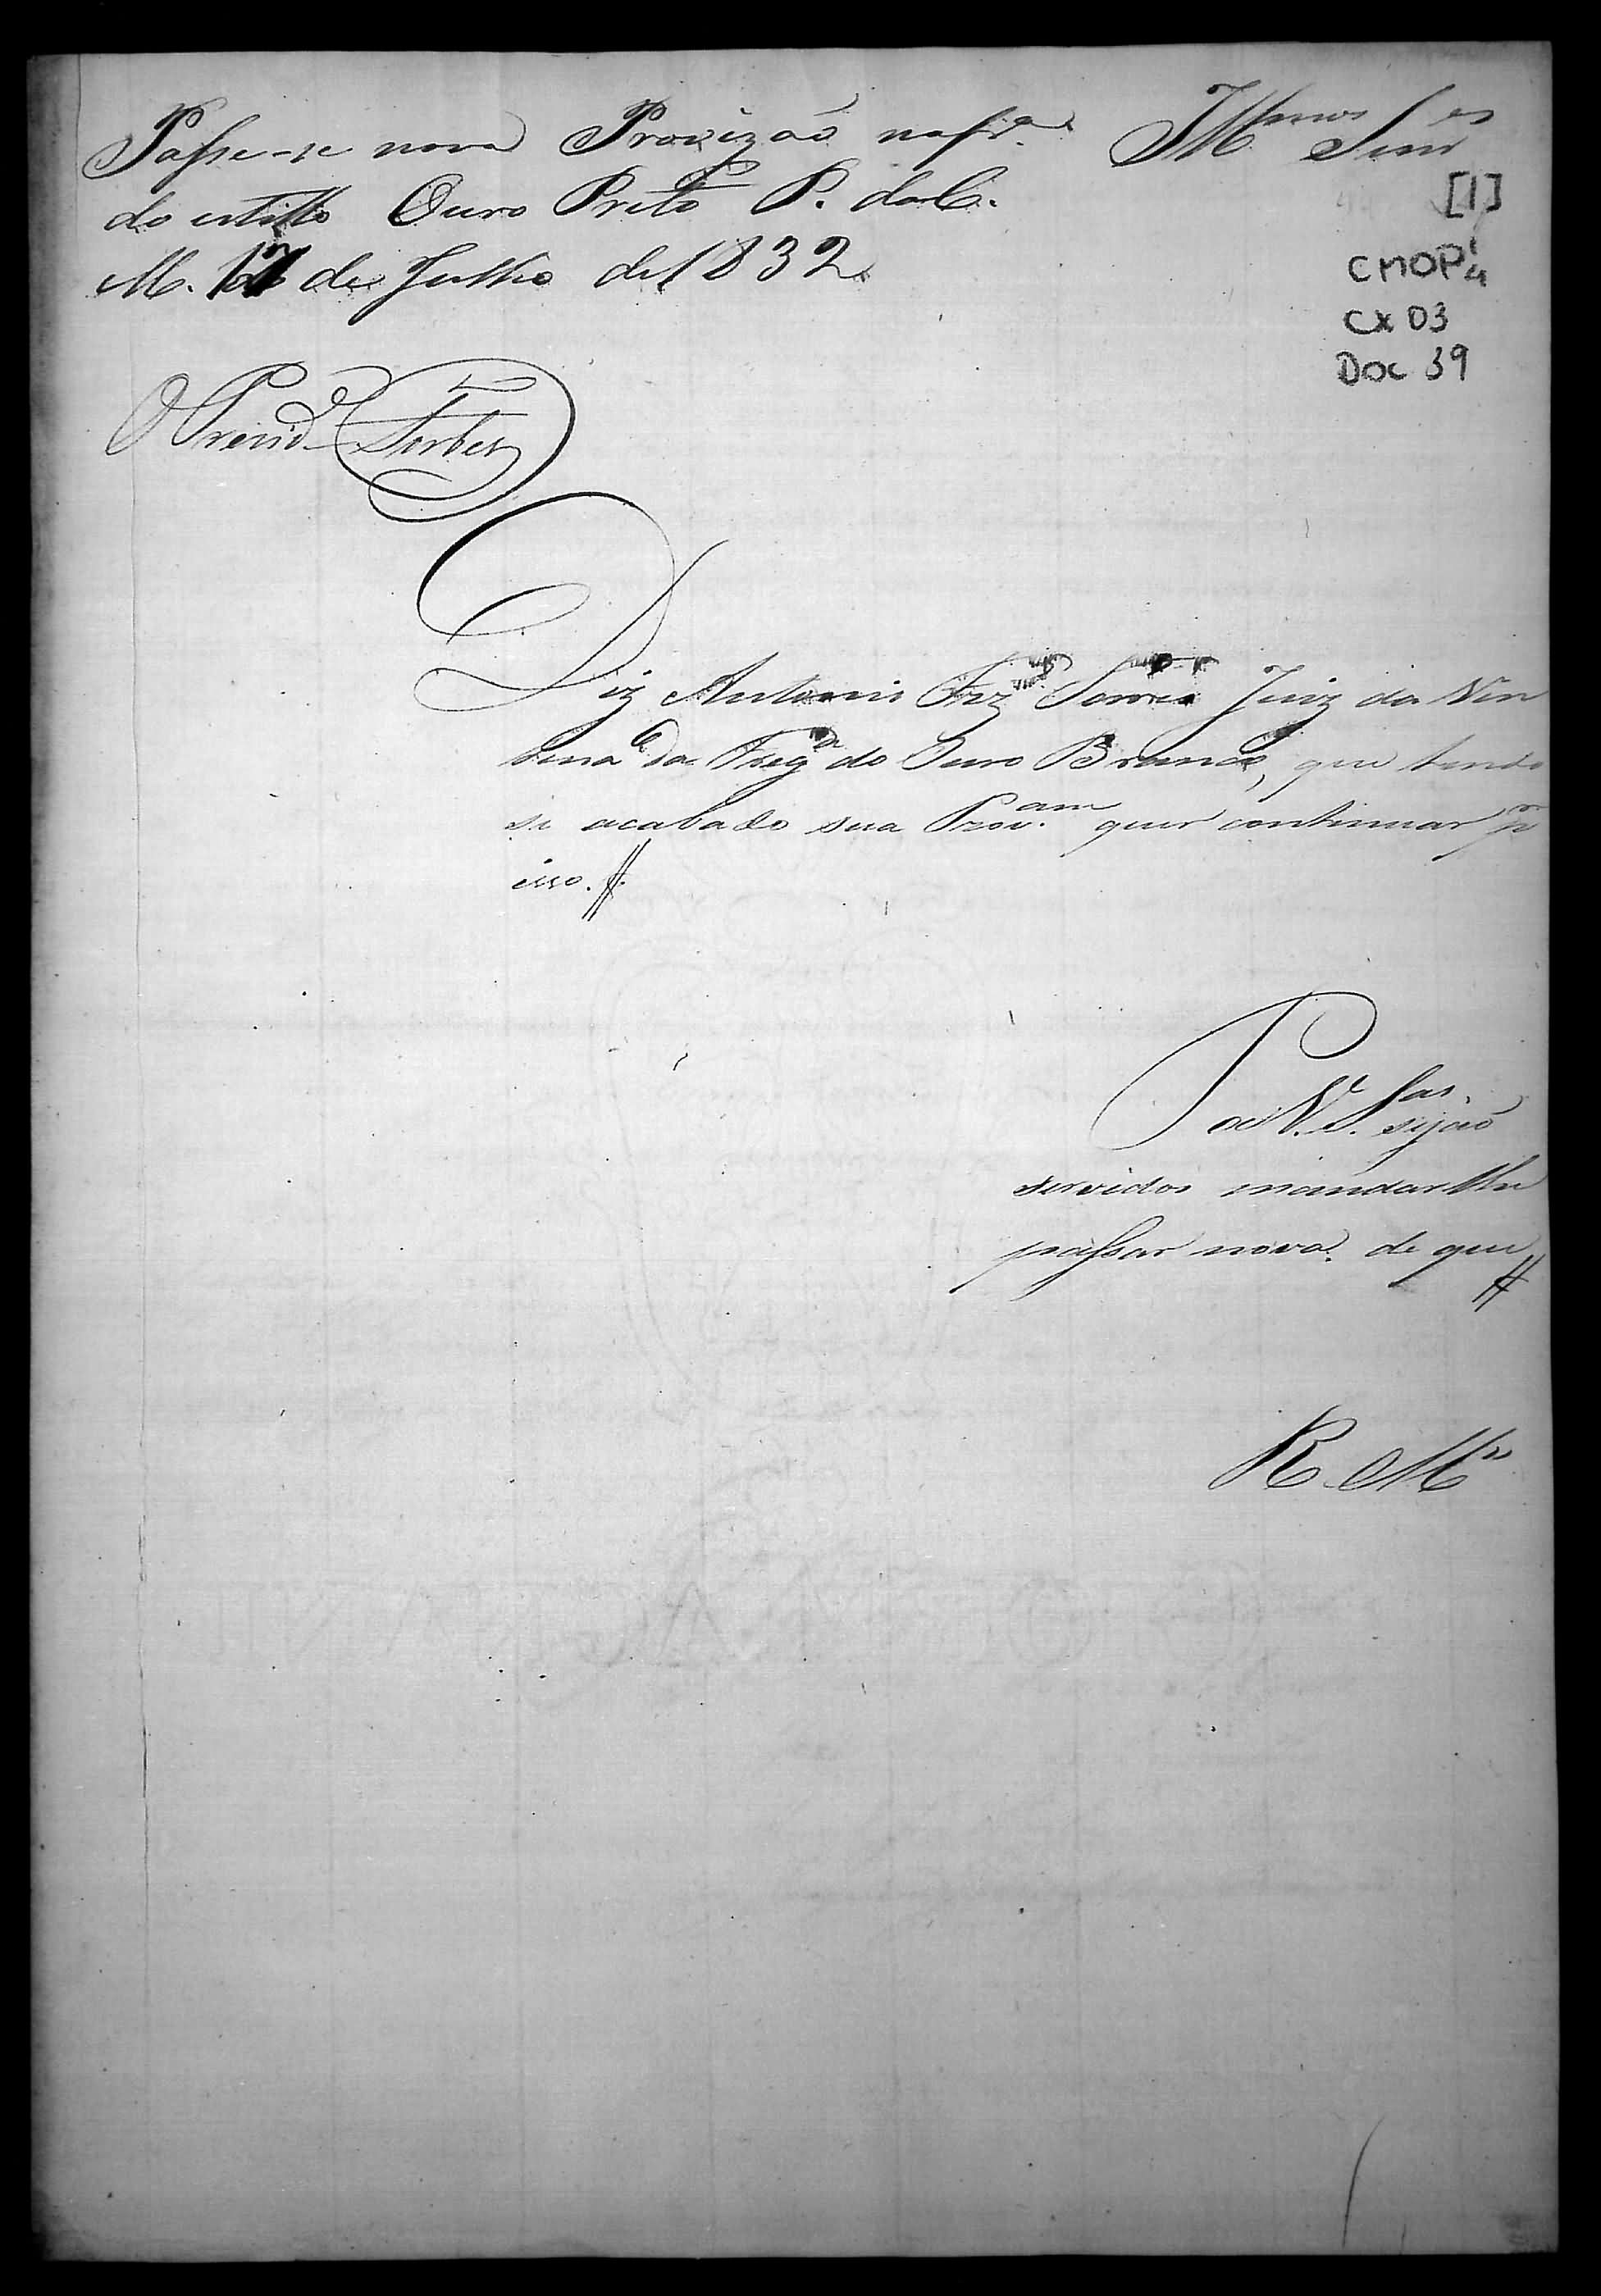 Passe-se nova Provizaõ na fr.ª
do estillo Ouro Preto P. da C.
M. 17 de Julho de 1832
O Prezid.e Forbes
Ill.mos Sen.res
[1]
CMOP 1/4
CX 03
DOC 39
Diz Antonio Frz Juiz da Vin
tena da Freg.a do Ouro Branco, que tendo
se acabado sua Prov.am quer continuar p.r
isso. //.
P
a V. S.as sejaõ
servidos mandar lhe
passar nova. de que
//
R M.ce